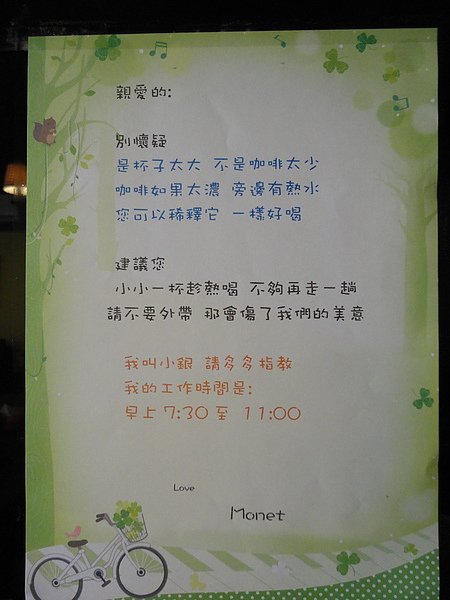 親愛的:
別懷疑
是杯子太大 不是咖啡太少
咖啡如果太濃 旁邊有熱水
您可以稀釋它 一樣好喝
建議您
小小一杯趁熱喝 不夠再走一趟
請不要外帶 那會傷了我們的美意
我叫小銀 請多多指教
我的工作時間是:
早上 7:30 至 11:00
Love
Monet